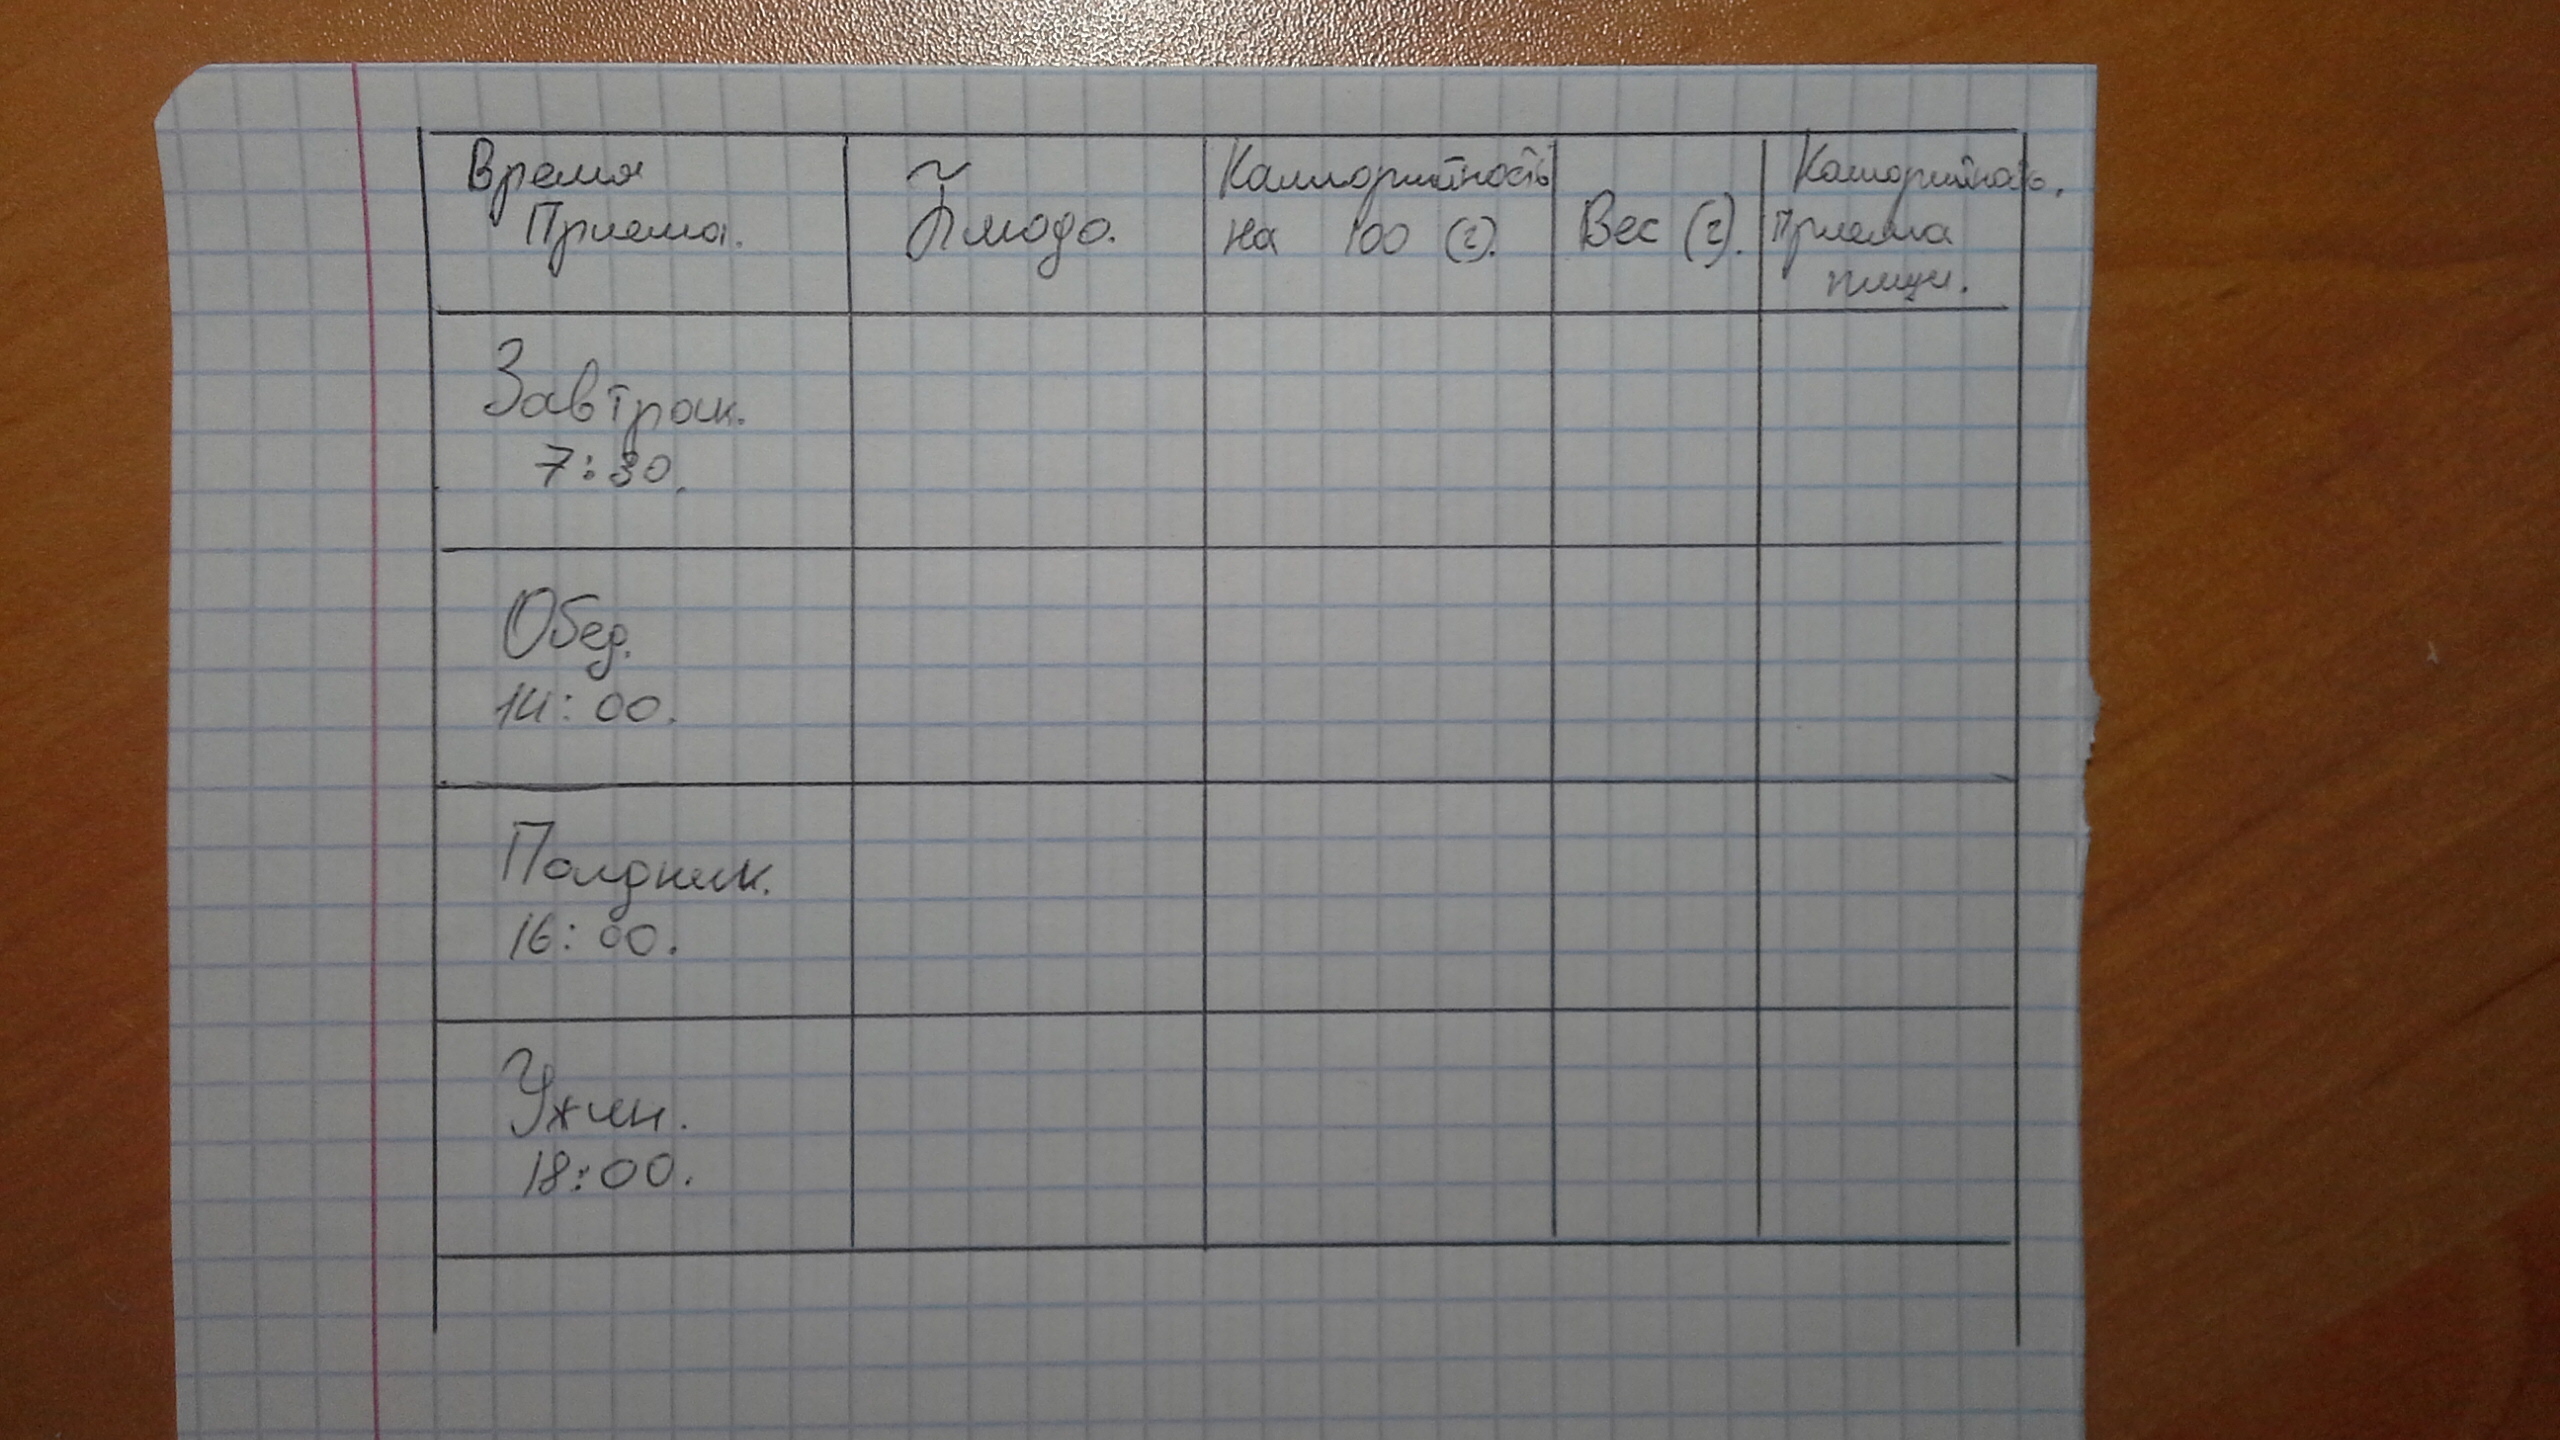 Время
Приема.
Блюдо.
Каллорийность
на 100 (г).
Вес (г).
Калорийность.
Приема
пищи.
Завтрак.
7:30.
Обед.
14:00.
Полдник.
16:00.
Ужин.
18:00.